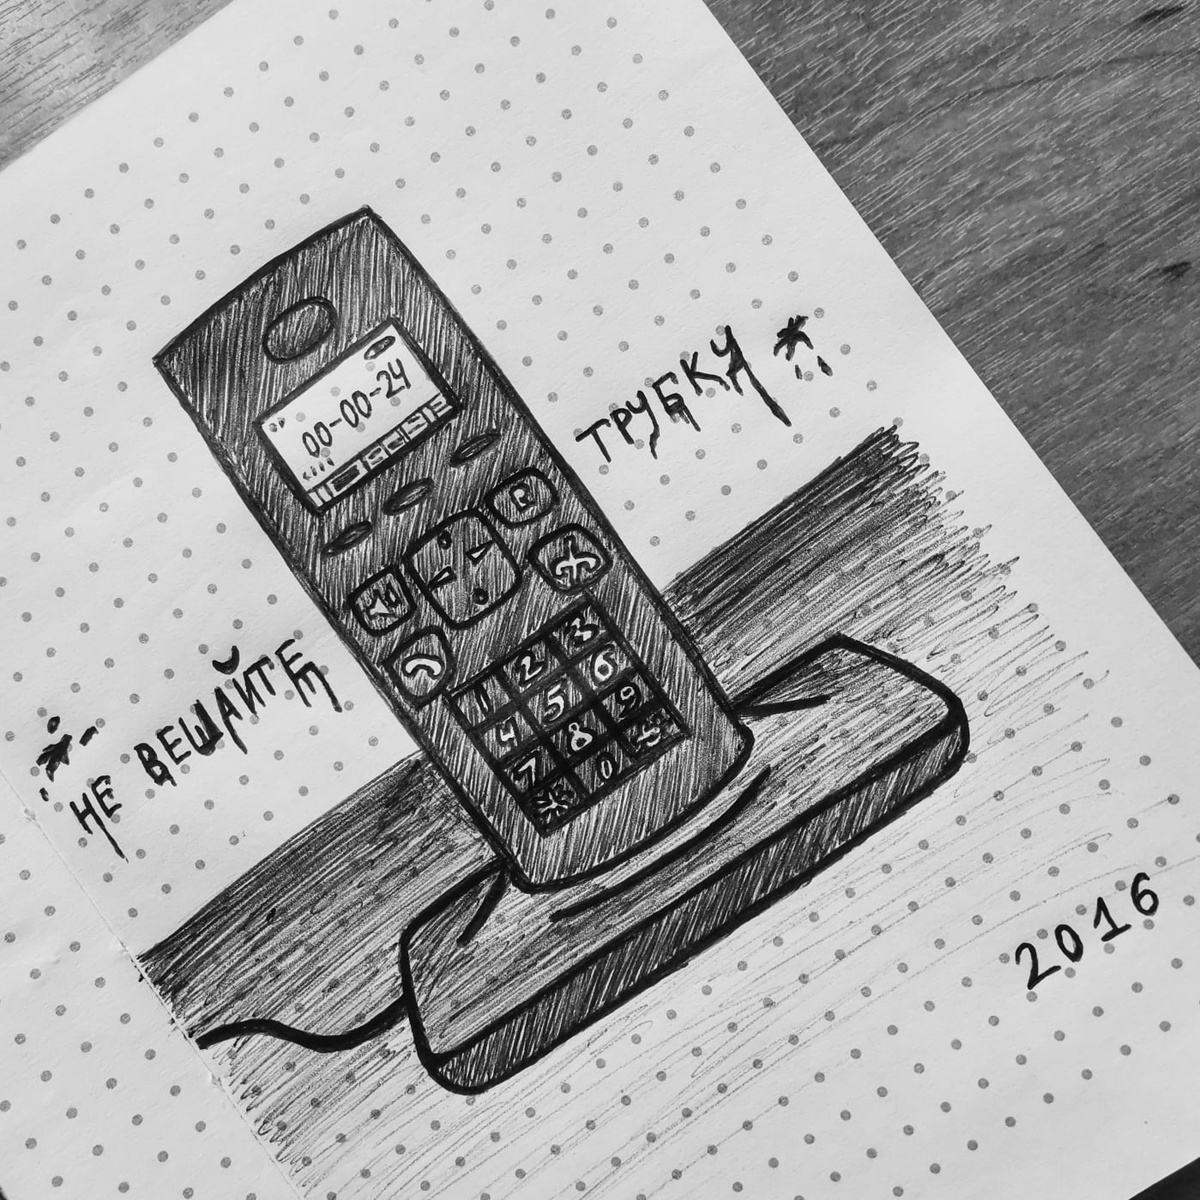 00-00-24
R
1 2 3
4 5 6
7 8 9
* 0 #
* НЕ ВЕШАЙТЕ
ТРУБКУ *
2016